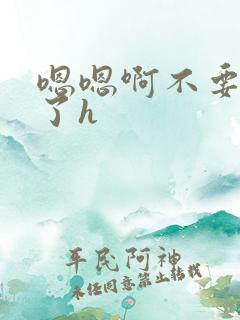 嗯嗯啊不要
了h
平民阿神
未经同意禁止转载